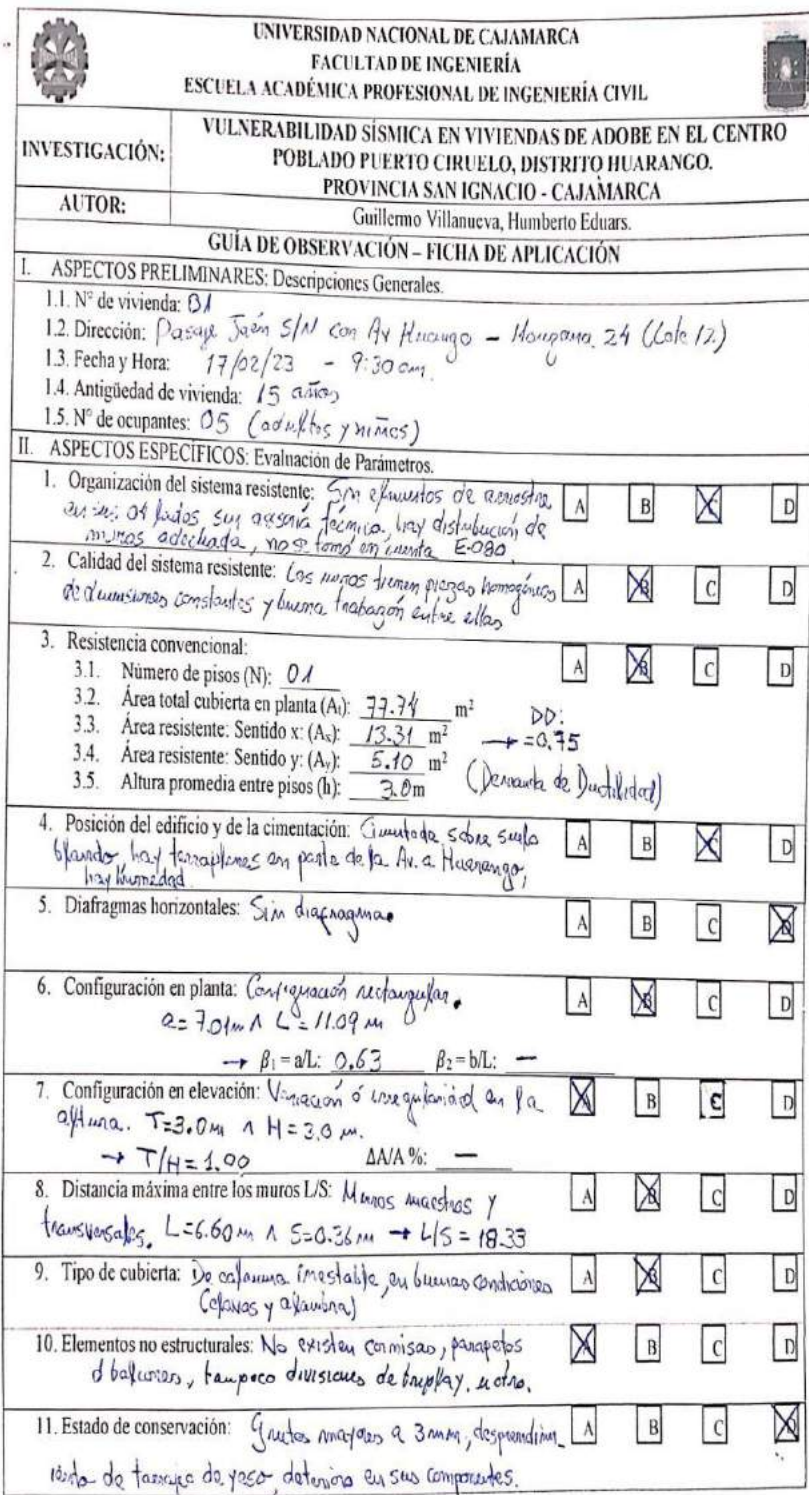 UNIVERSIDAD NACIONAL DE CAJAMARCA
FACULTAD DE INGENIERÍA
ESCUELA ACADÉMICA PROFESIONAL DE INGENIERÍA CIVIL
INVESTIGACIÓN:
VULNERABILIDAD SÍSMICA EN VIVIENDAS DE ADOBE EN EL CENTRO
POBLADO PUERTO CIRUELO, DISTRITO HUARANGO.
PROVINCIA SAN IGNACIO - CAJAMARCA
AUTOR:
Guillermo Villanueva, Humberto Eduars.
GUÍA DE OBSERVACIÓN – FICHA DE APLICACIÓN
I. ASPECTOS PRELIMINARES: Descripciones Generales.
1.1. N° de vivienda: 01
1.2. Dirección: Pasaje Jaén S/N con Av Huarango - 24 (Lote 12)
1.3. Fecha y Hora: 17/02/23 - 9:30 am.
1.4. Antigüedad de vivienda: 15 años
1.5. N° de ocupantes: 05 (adultos y niños)
II. ASPECTOS ESPECÍFICOS: Evaluación de Parámetros.
1. Organización del sistema resistente: Sin elementos de arriostre A B C D
en sus 04 lados, sin asesoría técnica, hay distribución de
muros adecuada, no se tomó en cuenta E-080.
2. Calidad del sistema resistente: Los muros tienen piezas homogéneas A B C D
de dimensiones constantes y buena trabazón entre ellas
3. Resistencia convencional: A B C D
3.1. Número de pisos (N): 01
3.2. Área total cubierta en planta (At): 77.74 m² DD:
3.3. Área resistente: Sentido x: (Ax): 13.31 m² → = 0.75
3.4. Área resistente: Sentido y: (Ay): 5.10 m² (Demanda de Ductilidad)
3.5. Altura promedia entre pisos (h): 3.0 m
4. Posición del edificio y de la cimentación: Cimentada sobre suelo A B C D
blando, hay terraplenes en parte de la Av. a Huarango,
hay humedad
5. Diafragmas horizontales: Sin diafragma. A B C D
6. Configuración en planta: Configuración rectangular. A B C D
a= 7.01m ∧ L = 11.09 m
→ β₁ = a/L: 0.63 β₂ = b/L: —
7. Configuración en elevación: Variación ó irregularidad en la A B C D
altura. T=3.0 m ∧ H = 3.0 m.
→ T/H = 1.00 ΔA/A %: —
8. Distancia máxima entre los muros L/S: Muros maestros y A B C D
transversales. L=6.60 m ∧ S=0.36 m → L/S = 18.33
9. Tipo de cubierta: De calamina inestable, en buenas condiciones A B C D
(clavos y alambra)
10. Elementos no estructurales: No existen cornisas, parapetos A B C D
ó balcones, tampoco divisiones de triplay, u otro.
11. Estado de conservación: Grietas mayores a 3 mm, desprendim- A B C D
iento de tarrajeo de yeso, deterioro en sus componentes.